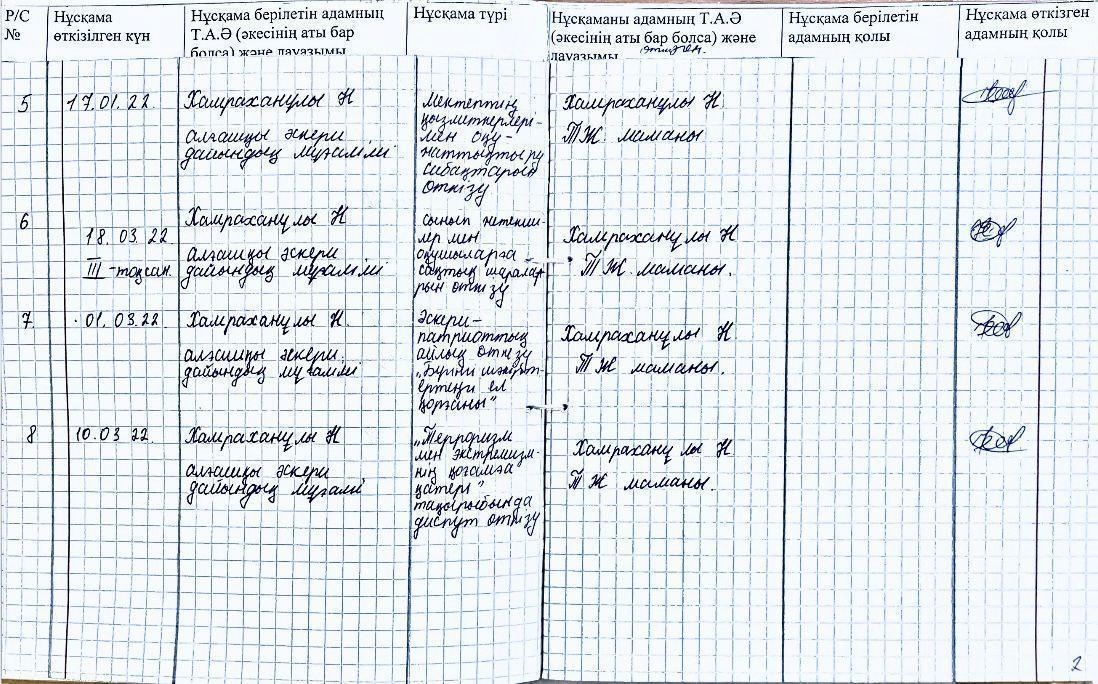 Р/С №
Нұсқама өткізілген күн
Нұсқама берілетін адамның Т.А.Ә (әкесінің аты бар болса) және лауазымы
Нұсқама түрі
Нұсқаманы адамның Т.А.Ә (әкесінің аты бар болса) және лауазымы
Нұсқама берілетін адамның қолы
Нұсқама өткізген адамның қолы
5
17.01.22
Хамраханұлы Н
алғашқы әскери
дайындық мұғалімі
Мектептің
қызметкерлері-
мен оқу-
жаттықтыру
сабақтарын
өткізу
Хамраханұлы Н
ТЖ маманы
6
18.03.22
III-тоқсан.
Хамраханұлы Н
алғашқы әскери
дайындық мұғалімі
сынып жетекші-
лер мен
оқушыларға
сақтық шаралар
рын өткізу
Хамраханұлы Н
ТЖ маманы.
7
01.03.22
Хамраханұлы Н.
алғашқы әскери
дайындық мұғалімі
Әскери-
патриоттық
айлық өткізу
"Бүгінгі
ертеңгі ел
қорғаны"
Хамраханұлы Н
ТЖ маманы.
8
10.03 22.
Хамраханұлы Н
алғашқы әскери
дайындық мұғалі
"Терроризм
мен экстремизм-
нің қоғамға
қатері"
тақырыбында
диспут өткізу
Хамраханұлы Н
ТЖ маманы.
2